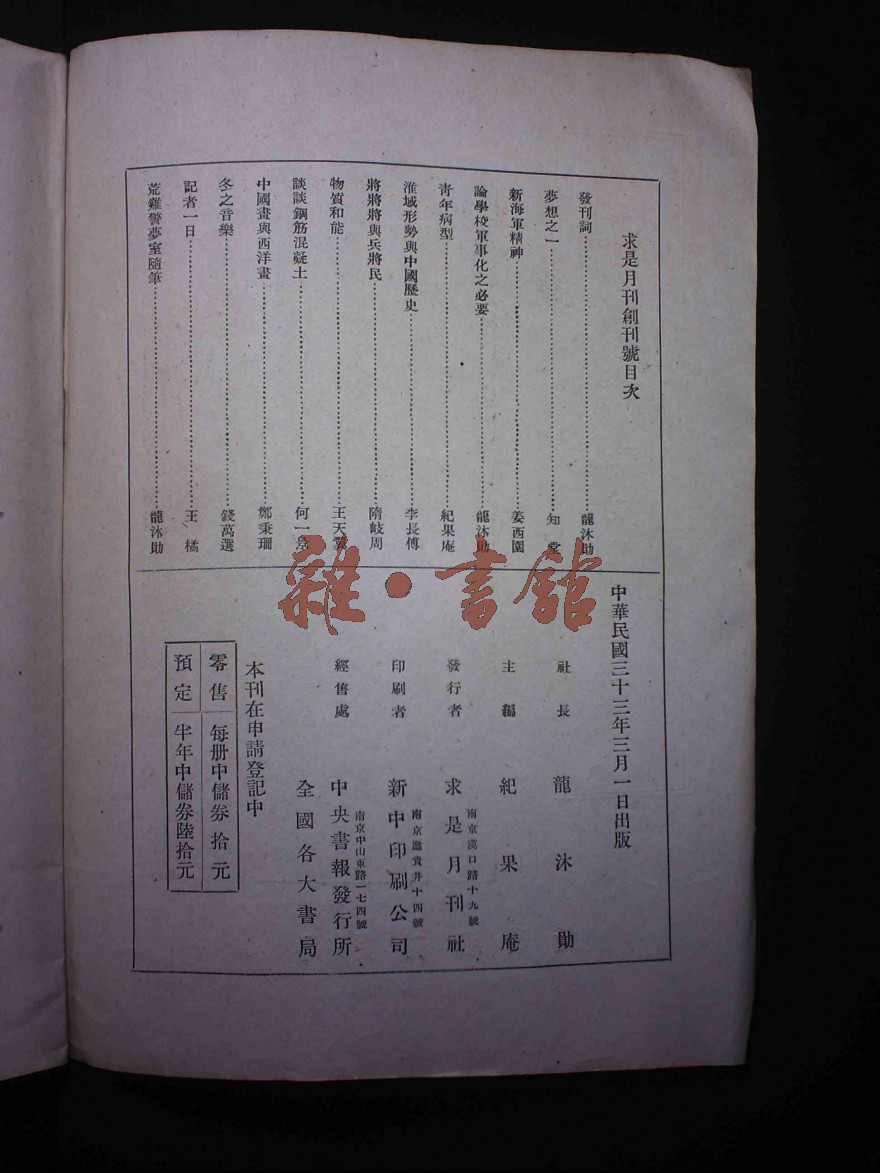 求是月刊創刊號目次
發刊詞……龍沐勛
夢想之一……知堂
新海軍精神……姜西園
論學校軍事化之必要……龍沐勛
青年病型……紀果庵
淮域形勢與中國歷史……李長傅
將將將與兵將民……隋岐周
物質和能……王天
談談鋼筋混凝土……何一
中國畫與西洋畫……鄭秉珊
冬之音樂……錢萬選
記者一日……王橘
荒雞警夢室隨筆……龍沐勛
中華民國三十三年三月一日出版
社長 龍沐勛
主編 紀果庵
發行者 求是月刊社
南京漢口路十九號
印刷者 新中印刷公司
南京邀貴井十四號
經售處 中央書報發行所
南京中山東路一七四號
全國各大書局
本刊在申請登記中
零售 每册中儲券拾元
預定 半年中儲券陸拾元
雜·書館